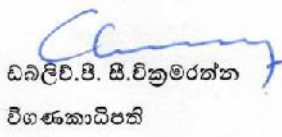 ඩබ්ලිව්.පී. සී.වික්‍රමරත්න
විගණකාධිපති